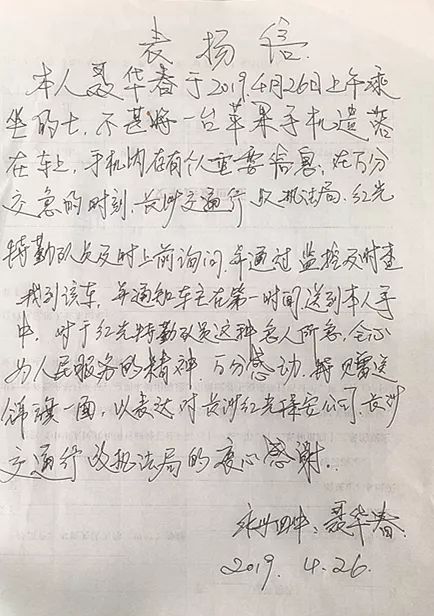 表扬信
本人聂华春于2019.4月26日上午乘
坐的士,不甚将一台苹果手机遗落
在车上,手机内存有个人重要信息,在万分
交急的时刻,长沙交通行政执法局、红光
特勤队员及时上前询问,并通过监控及时查
找到该车,并通知车主在第一时间送到本人手
中,对于红光特勤队员这种急人所急,全心
为人民服务的精神万分感动,特赠送
锦旗一面,以表达对长沙红光保安公司、长沙
交通行政执法局的衷心感谢.
永州四中:聂华春
2019. 4.26.